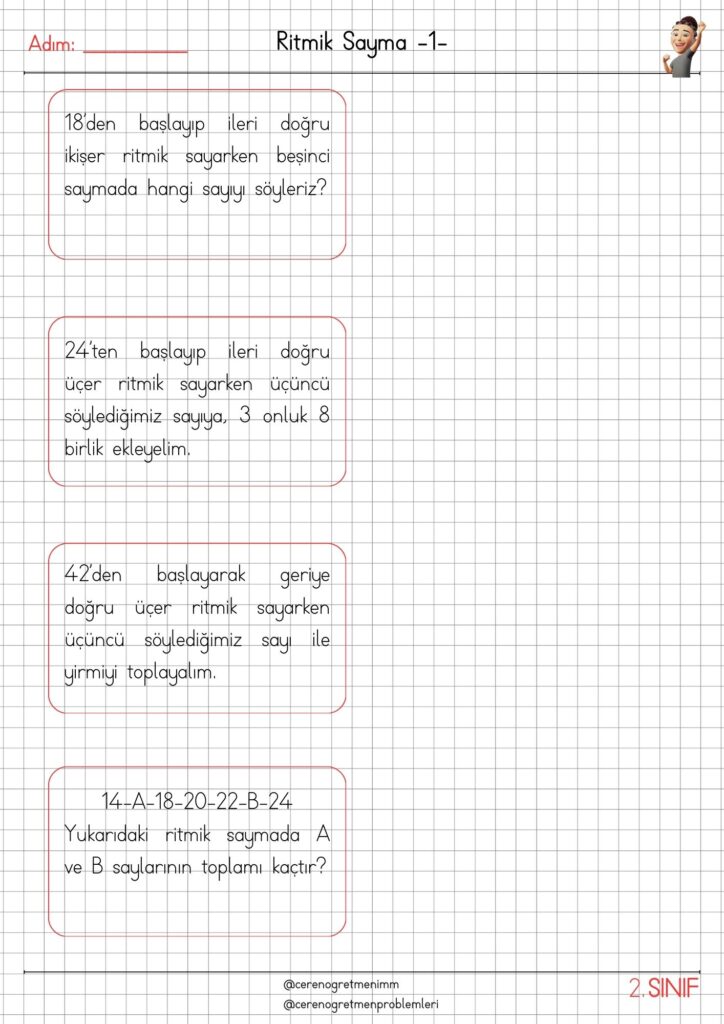 Adım: ____________
Ritmik Sayma -1-
18'den başlayıp ileri doğru
ikişer ritmik sayarken beşinci
saymada hangi sayıyı söyleriz?
24'ten başlayıp ileri doğru
üçer ritmik sayarken üçüncü
söylediğimiz sayıya, 3 onluk 8
birlik ekleyelim.
42'den başlayarak geriye
doğru üçer ritmik sayarken
üçüncü söylediğimiz sayı ile
yirmiyi toplayalım.
14-A-18-20-22-B-24
Yukarıdaki ritmik saymada A
ve B saylarının toplamı kaçtır?
@cerenogretmenimm
@cerenogretmenproblemleri
2.SINIF